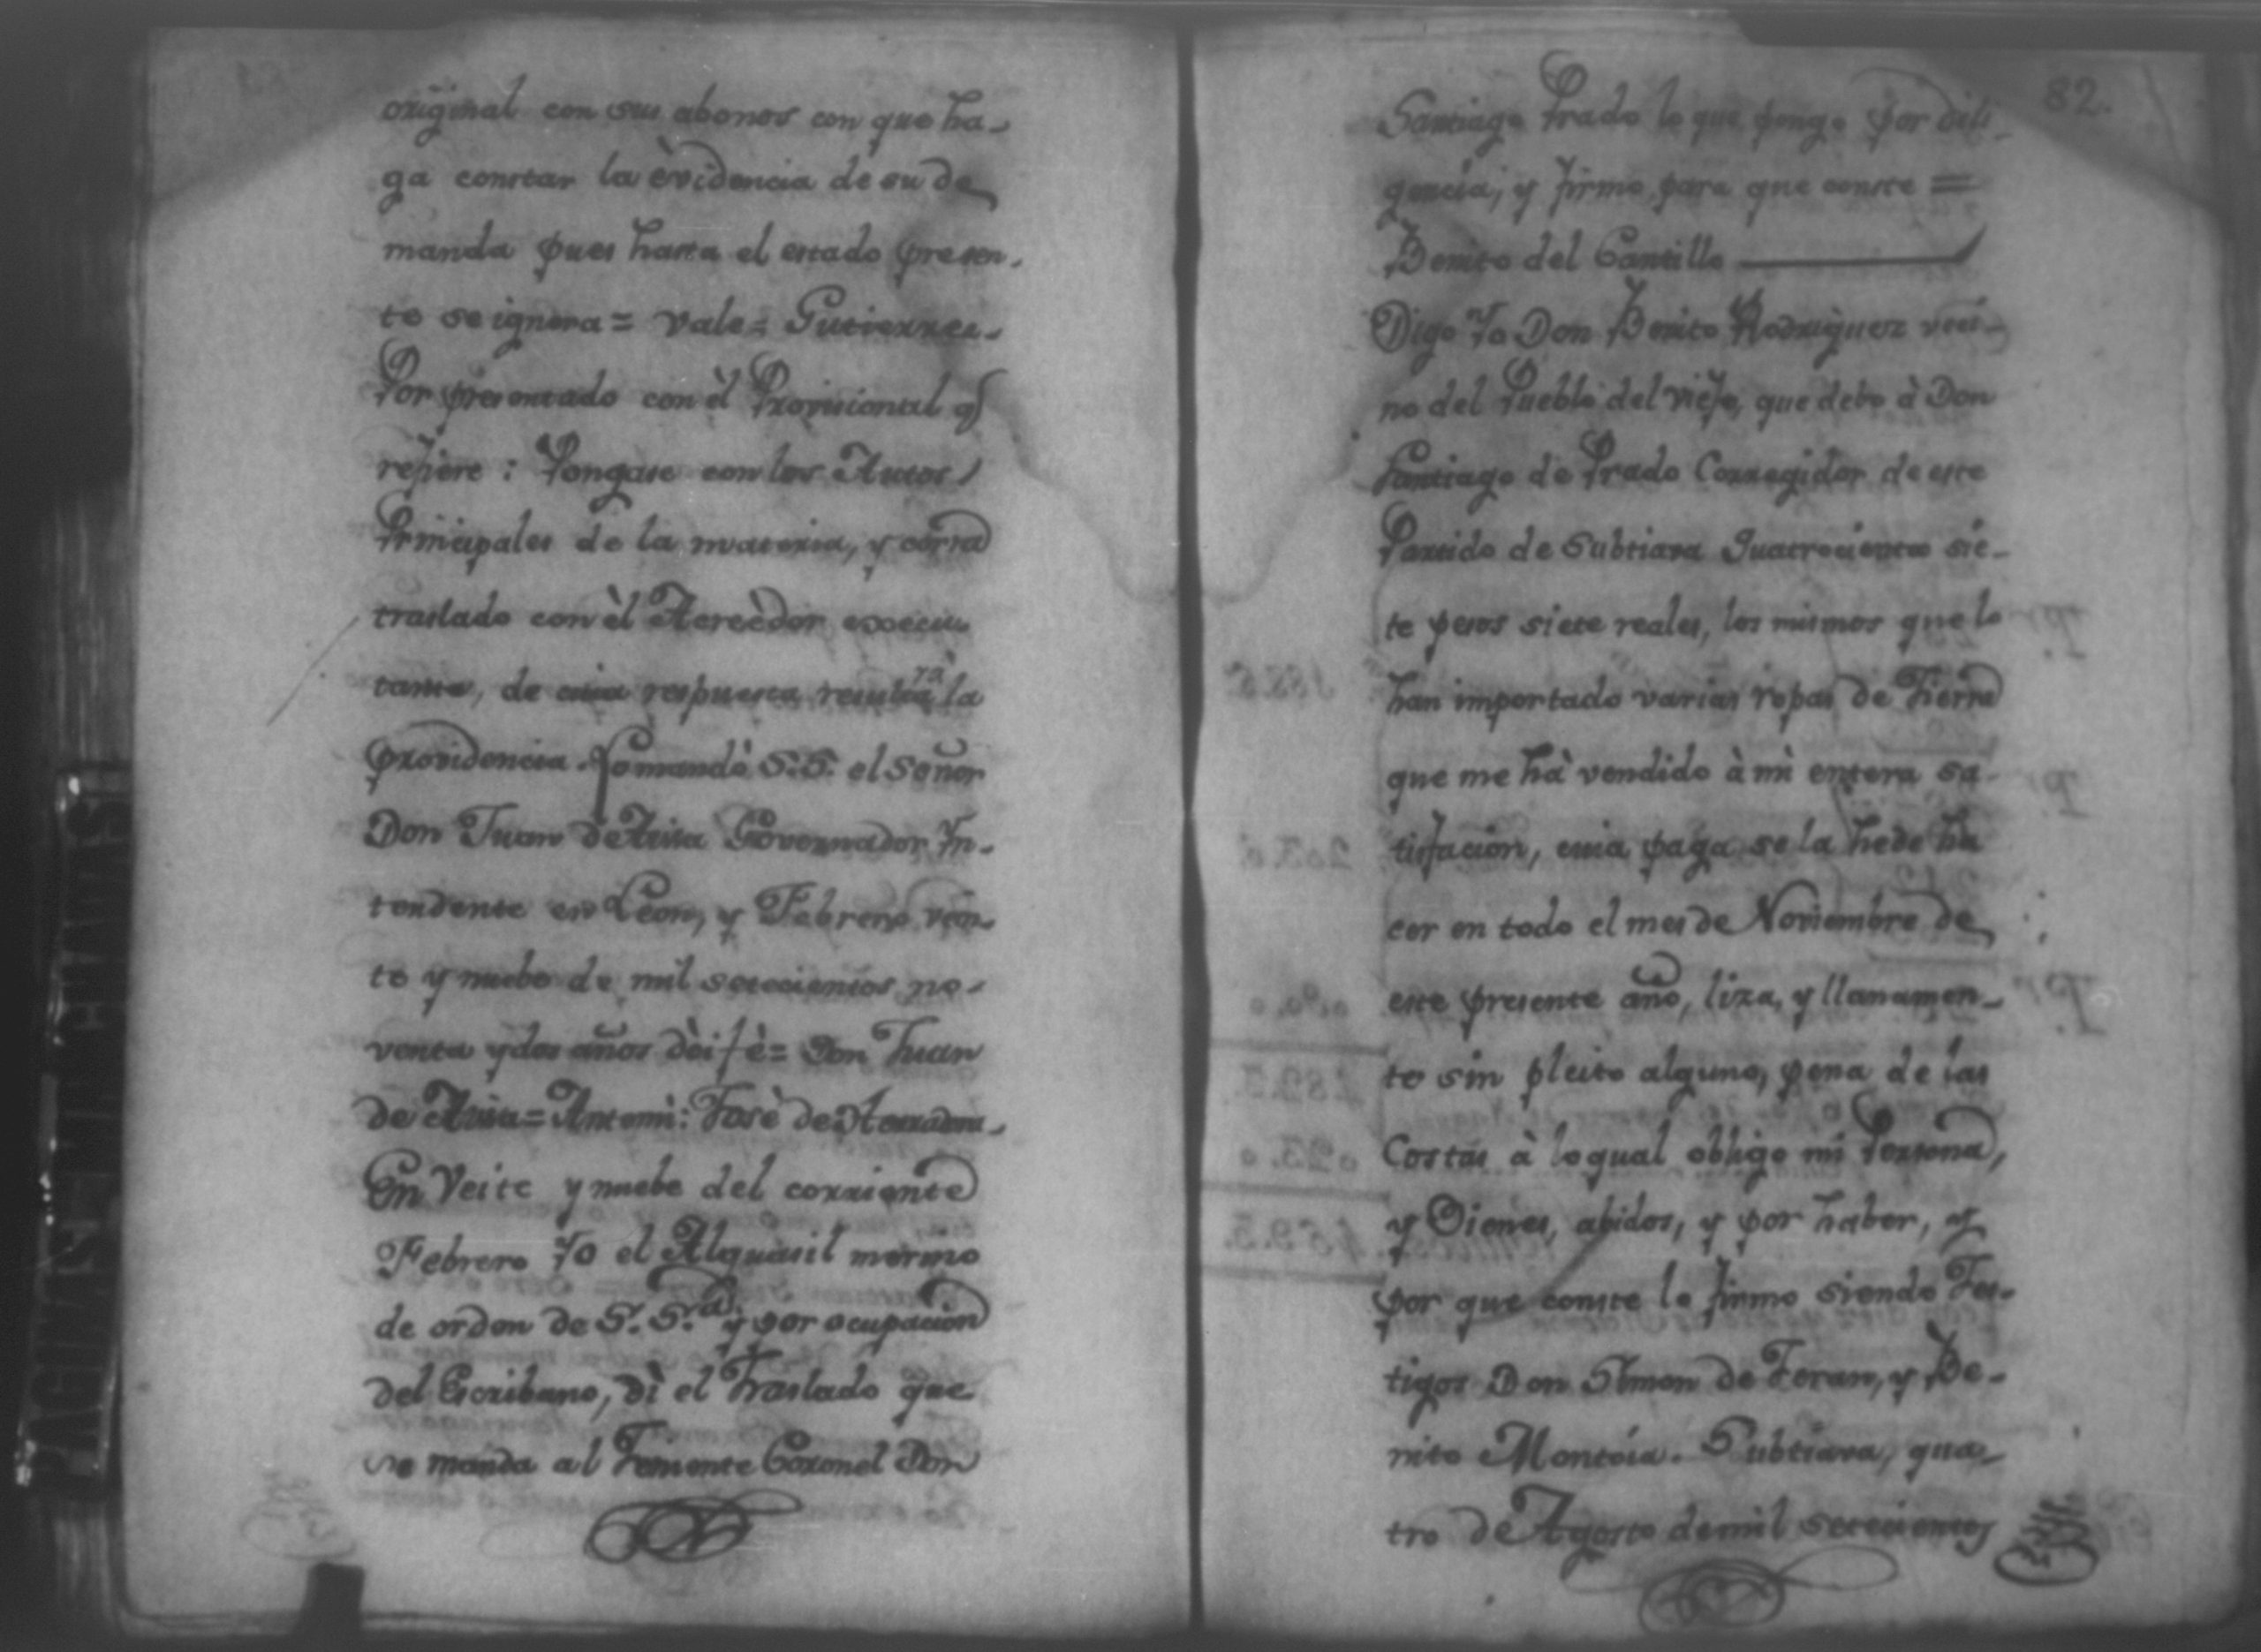 original con sus abonos con que ha-
ga constar la èvidencia de su de
manda pues hasta el estado presen-
te se ignora = vale = Gutierrez-
Por presentado con èl Provisional q
refiere: Pongase con los Autos
Principales de la materia, y corra
traslado con èl Acreèdor execu
tante, de cuia respuesta resultarà la
providencia. Lo mandò S.S. el Señor
Don Juan de Aiisa Governador In-
tendente en Leon, y Febrero vein-
te y nuebe de mil setecientos no-
venta y dos años dòi fè = Don Juan
de = Antomì: Josè de
En Veite y nuebe del corriente
Febrero Yo el Alguasil mormo
de orden de S. S.ª y por ocupacion
del Escribano, dì el Traslado que
se manda al Teniente Coronel Don
82.
Santiago Prado lo que pongo por dili-
gencia, y firmo para que conste =
Benito del Cantillo
Digo Yo Don Benito Rodriguez veci-
no del Pueblo del viejo, que debo à Don
Santiago de Prado Corregidor de este
Partido de Subtiava Quatrocientos sie-
te pesos siete reales, los mismos que lo
han importado varias ropas de Tierra
que me hà vendido à mì entera sa-
tisfacion, cuia paga se la hede ha
cer en todo el mes de Noviembre de
este presente año, liza, y llanamen-
te sin pleito alguno, pena de las
Costas à loqual obligo mi Persona,
y Bienes, abidos, y por haber, y
por que conste lo firmo siendo Tes-
tigos Don Simon de Teran, y Be-
nito Montoia. Subtiava, qua-
tro de Agosto de mil setecientos